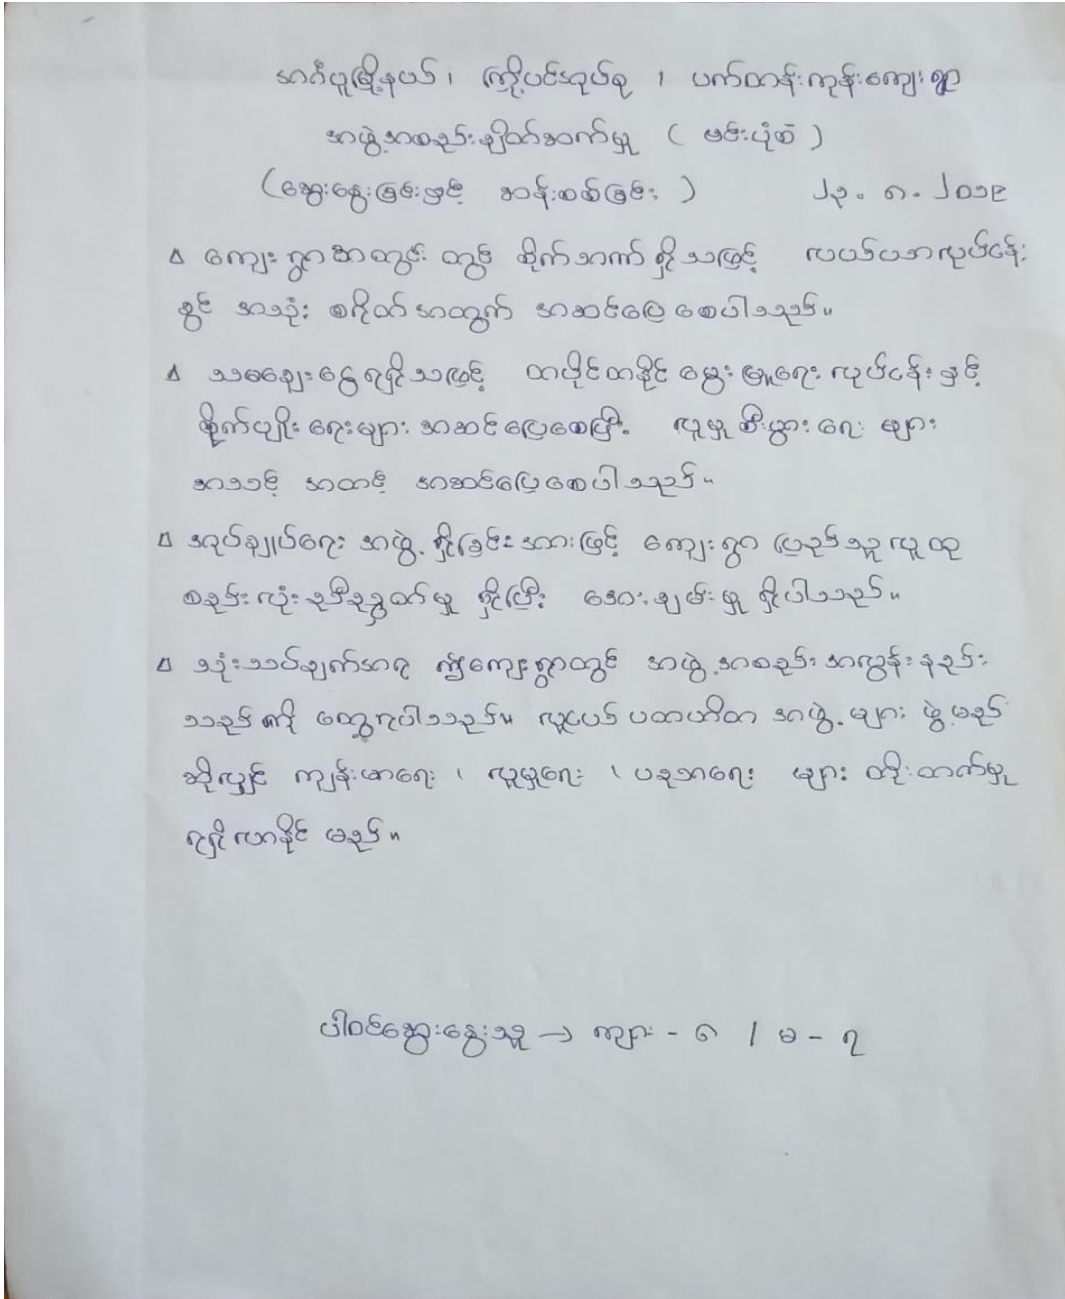 အင်္ဂပူမြို့နယ်၊ ကြို့ပင်အုပ်စု ၊ ပက်တန်းကုန်းကျေးရွာ
အဖွဲ့အစည်းချိတ်ဆက်မှု ( မင်းပုံစံ )
(ဆွေးနွေးခြင်းနှင့် ဆန်းစစ်ခြင်း ) ၂၃.၈.၂၀၁၉
∆ ကျေးရွာအတွင်းတွင် စိုက်ဘဏ်ရှိသဖြင့် လယ်ယာလုပ်ငန်း
ခွင် အသုံးစရိတ်အတွက် အဆင်ပြေစေပါသည်။
∆ သမချေးငွေရရှိသဖြင့် တပိုင်တနိုင် မွေးမြူရေးလုပ်ငန်းနှင့်
စိုက်ပျိုးရေးများအဆင်ပြေစေပြီး လူမှုစီးပွားရေးများ
အသင့် အတင့် အဆင်ပြေစေပါသည်။
∆ အုပ်ချုပ်ရေး အဖွဲ့ ရှိခြင်းအားဖြင့် ကျေးရွာ ပြည်သူလူထု
စည်းလုံးညီညွတ်မှု ရှိပြီး အေးချမ်းမှု ရှိပါသည်။
∆ သုံးသပ်ချက်အရ ဤကျေးရွာတွင် အဖွဲ့အစည်းအလွန်းနည်း
သည်ကို တွေ့ရပါသည်။ လူငယ် ပရဟိတ အဖွဲ့များ ဖွဲ့မည်
ဆိုလျှင် ကျန်းမာရေး ၊ လူမှုရေး ၊ ပညာရေး များ တိုးတက်မှု
ရရှိလာနိုင် မည်။
ပါဝင်ဆွေးနွေးသူ → ကျား - ၈ / မ - ၇